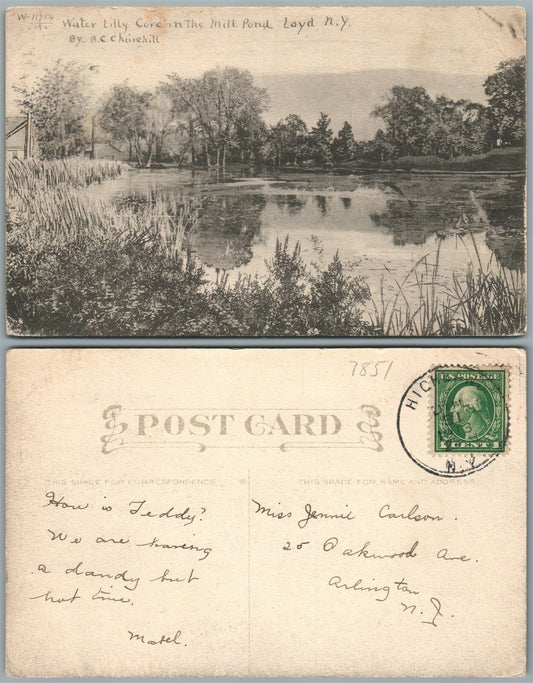 W-11754
Water Lilly Cove in the Mill Pond Loyd N.Y.
By B.C Churchill
7851
HIC
N.Y.
U.S. POSTAGE
1 CENTS 1
POST CARD
THIS SPACE FOR CORRESPONDENCE
THIS SPACE FOR NAME AND ADDRESS
How is Teddy?
We are having
a dandy but
hot time.
Mabel.
Miss Jennie Carlson.
25 Oakwood Ave.
Arlington
N. J.